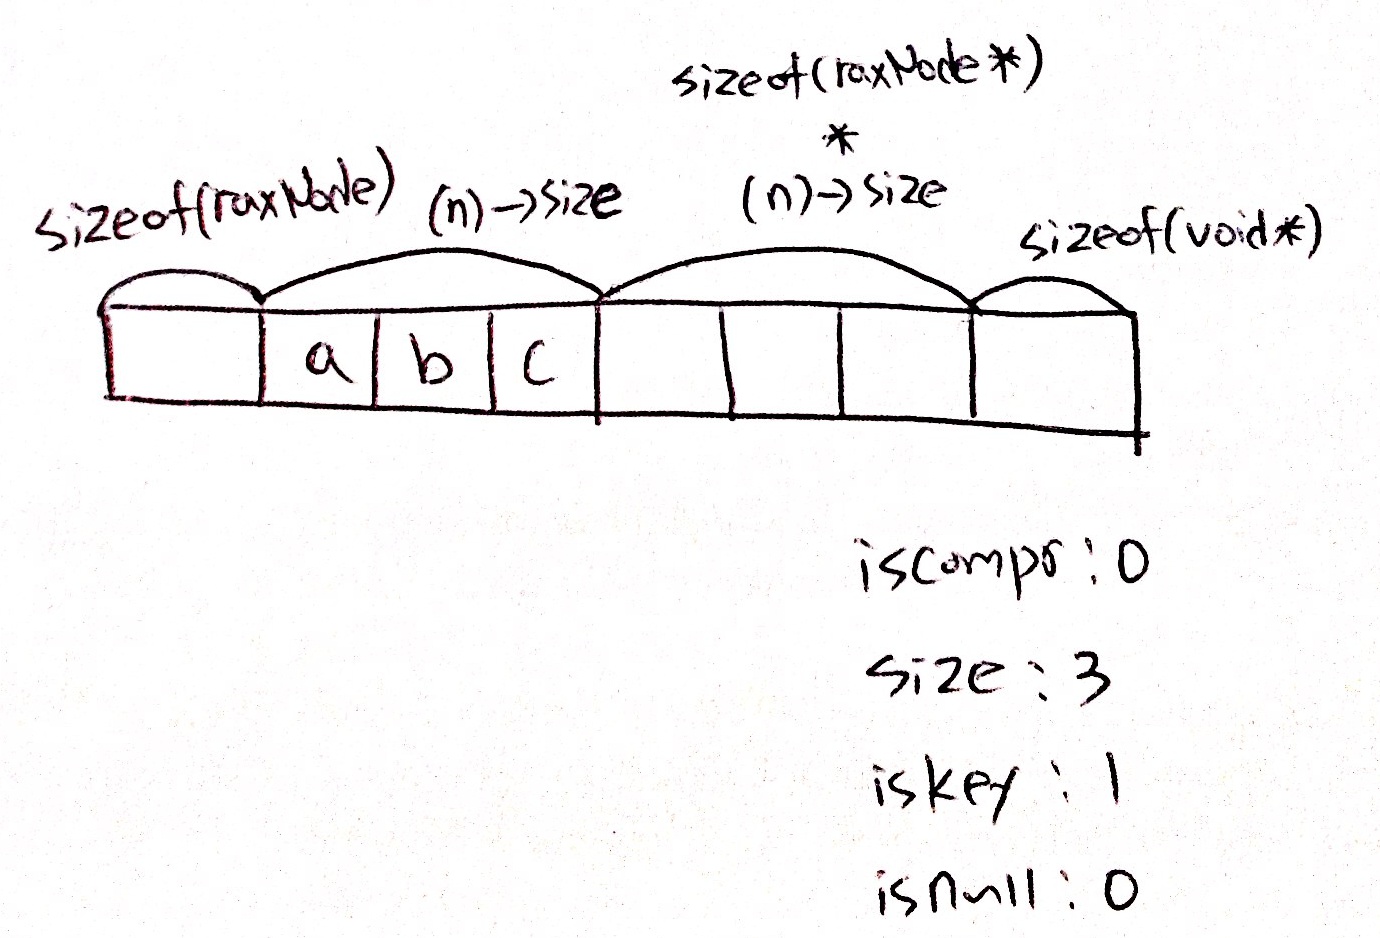 sizeof(raxNode*)
*
sizeof(raxNode) (n)->size (n)->size sizeof(void*)
a b c
iscompr: 0
size: 3
iskey: 1
isnull: 0